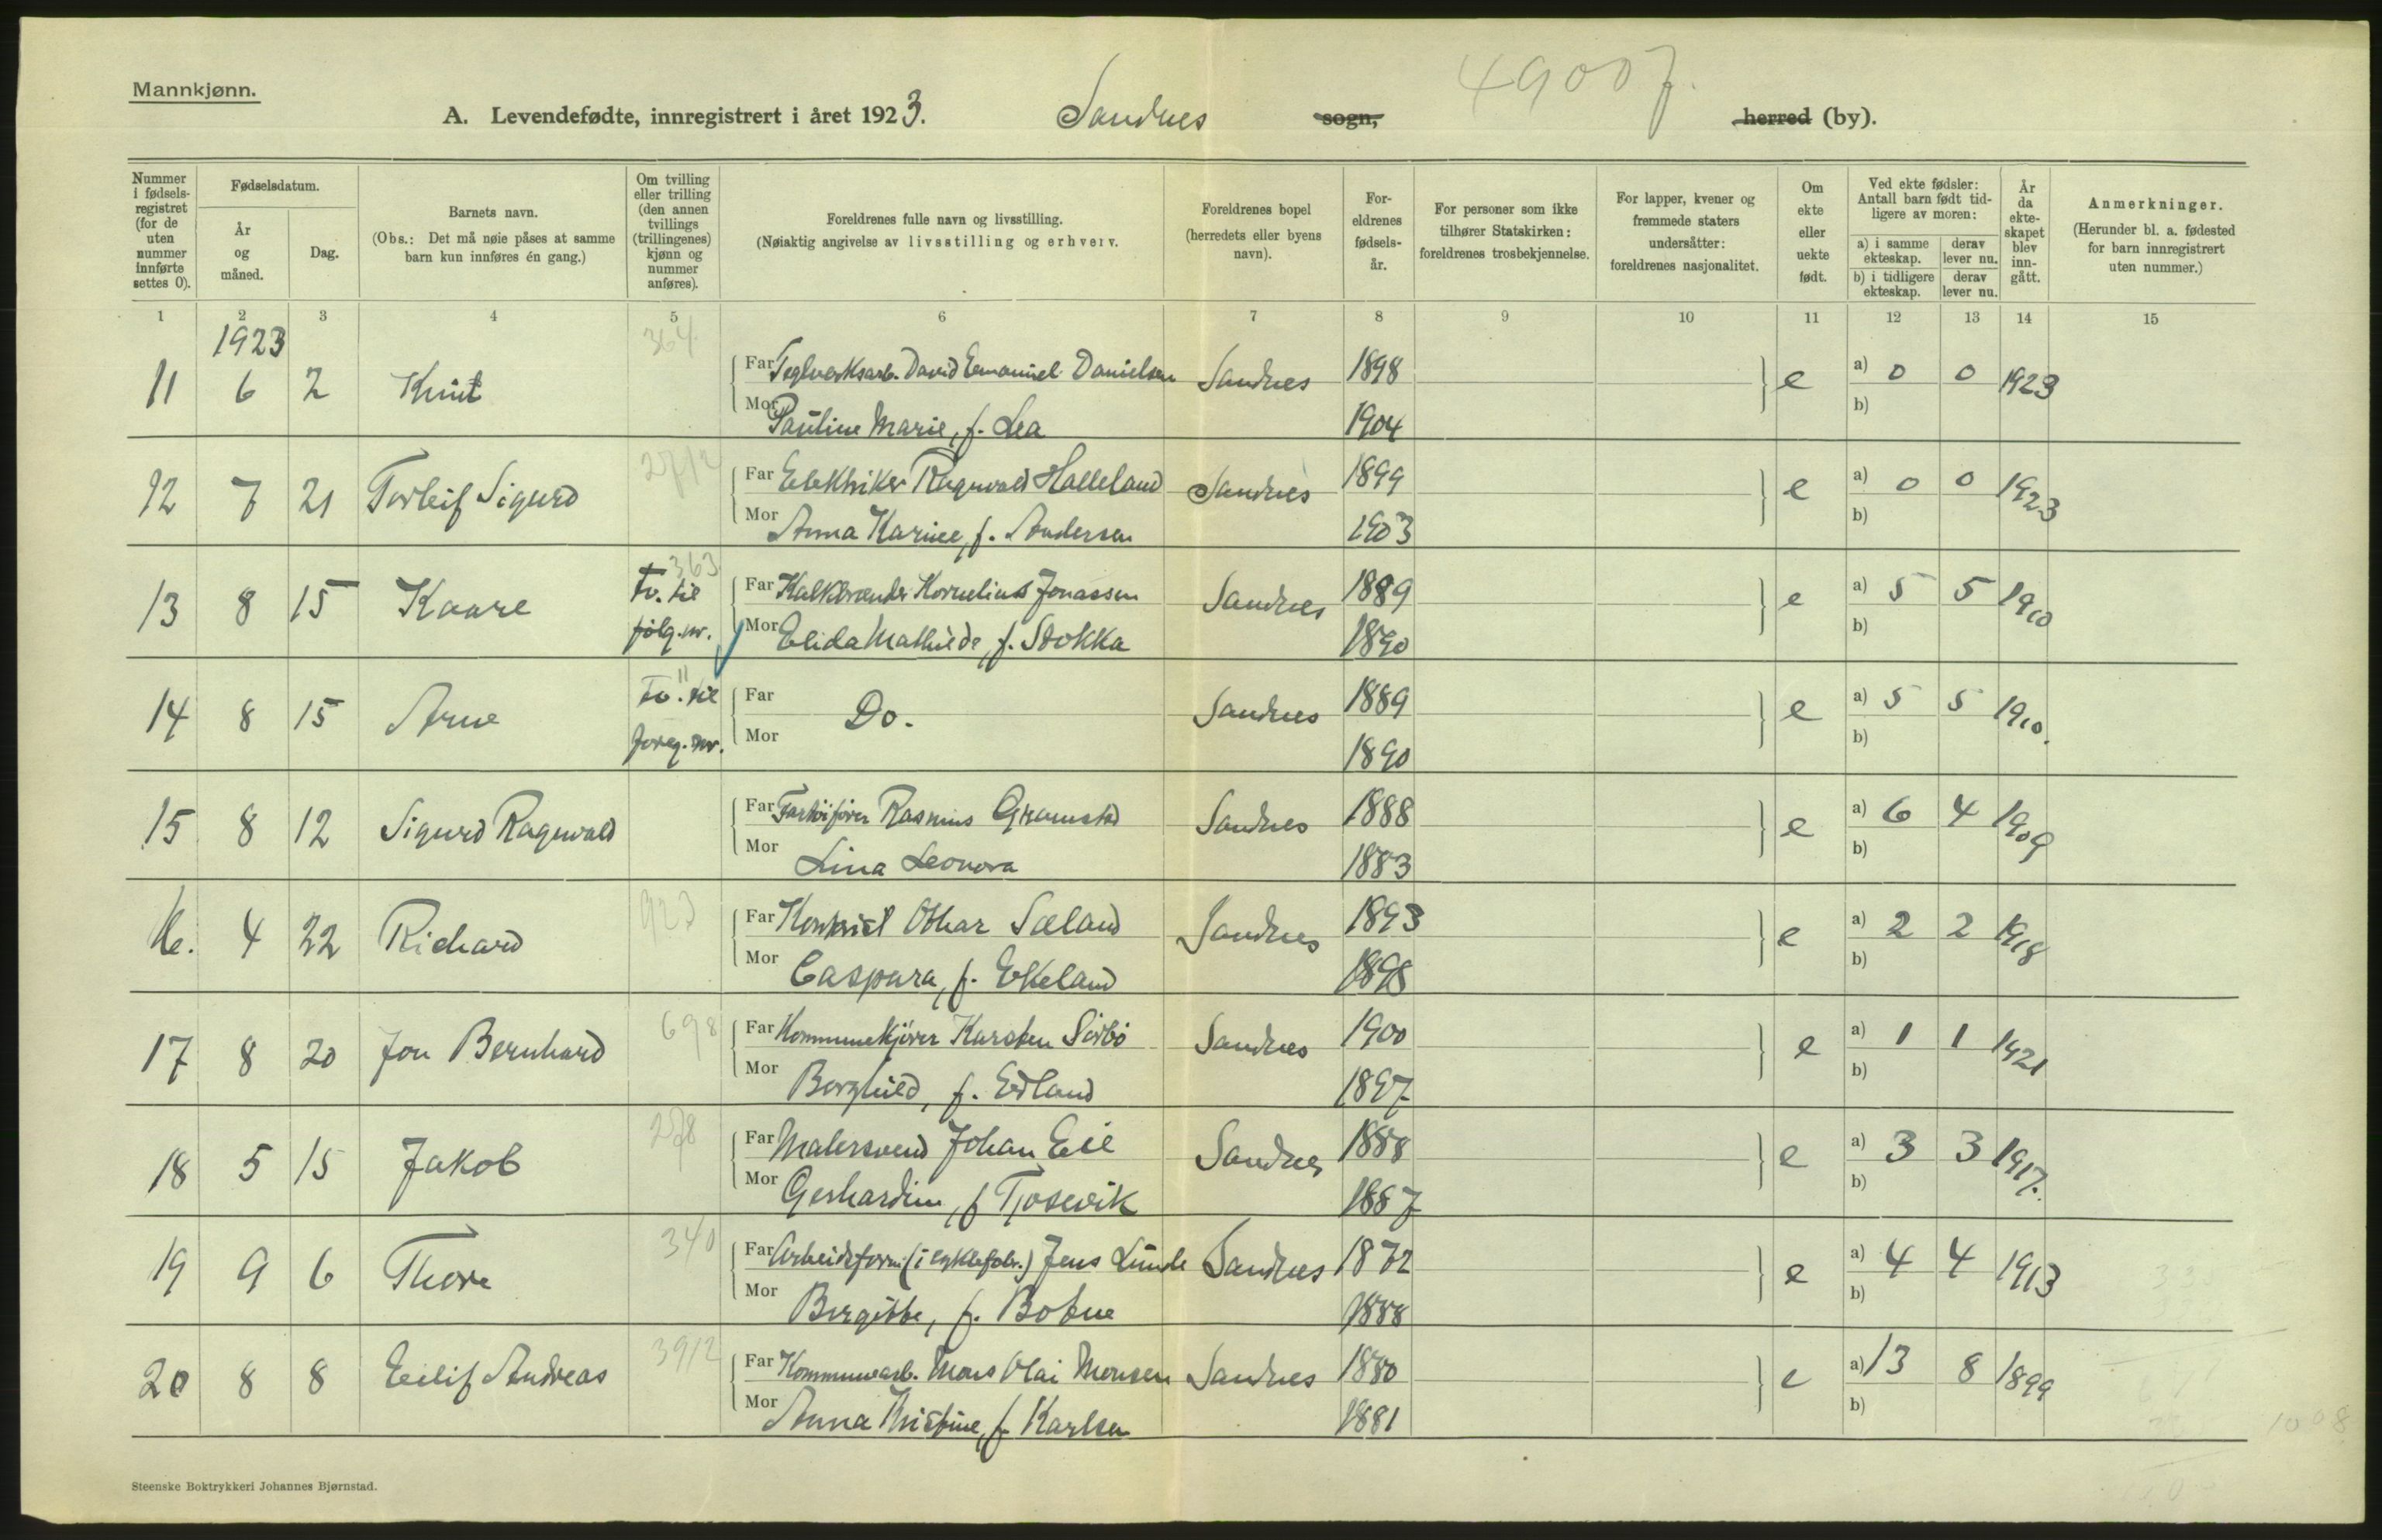 Mannkjønn.
A. Levendefødte, innregistrert i året 1923. Sandnes sogn, herred (by).
4900 f.
Nummer i fødsels-registret (for de uten nummer innførte settes 0).
Fødselsdatum.
År og måned.
Dag.
Barnets navn.
(Obs.: Det må nøie påses at samme barn kun innføres én gang.)
Om tvilling eller trilling (den annen tvillings (trillingenes) kjønn og nummer anføres).
Foreldrenes fulle navn og livsstilling.
(Nøiaktig angivelse av livsstilling og erhverv.
Foreldrenes bopel (herredets eller byens navn).
For-eldrenes fødsels-år.
For personer som ikke tilhører Statskirken: foreldrenes trosbekjennelse.
For lapper, kvener og fremmede staters undersåtter: foreldrenes nasjonalitet.
Om ekte eller uekte født.
Ved ekte fødsler: Antall barn født tid-ligere av moren:
a) i samme ekteskap. derav lever nu.
b) i tidligere ekteskap. derav lever nu.
År da ekte-skapet blev inn-gått.
Anmerkninger.
(Herunder bl. a. fødested for barn innregistrert uten nummer.)
1 2 3 4 5 6 7 8 9 10 11 12 13 14 15
1923
364
11 6 2 Knut Far Teglverksarb. David Emanuel Danielsen Sandnes 1898 e a) 0 0 1923
Mor Pauline Marie, f. Lea 1904 b)
2712
12 7 21 Torleif Sigurd Far Elektriker Ragnvald Halleland Sandnes 1899 e a) 0 0 1923
Mor Anna Karine, f. Andersen 1903 b)
363
13 8 15 Kaare Tv. til følg. nr. Far Kalkbrænder Kornelius Jonassen Sandnes 1889 e a) 5 5 1910
Mor Elida Mathilde, f. Stokka 1890 b)
"
14 8 15 Arne Tv. til foreg. nr. Far Do. Sandnes 1889 e a) 5 5 1910.
Mor 1890 b)
15 8 12 Sigurd Ragnvald Far Fartøifører Rasmus Gramstad Sandnes 1888 e a) 6 4 1909
Mor Lina Leonora 1883 b)
923
16. 4 22 Richard Far Kontorist Othar Sæland Sandnes 1893 e a) 2 2 1918
Mor Caspara, f. Ekeland 1898 b)
698
17 8 20 Jon Bernhard Far Kommunekjører Karsten Sørbø Sandnes 1900 e a) 1 1 1921
Mor Borghild, f. Edland 1897 b)
278
18 5 15 Jakob Far Malersvend Johan Eie Sandnes 1888 e a) 3 3 1917.
Mor Gerhardine, f Tjosevik 1887 b)
340
19 9 6 Thore Far Arbeidsform. (i cyklefabr.) Jens Lunde Sandnes 1872 e a) 4 4 1913
Mor Bergitte, f. Bokne 1888 b)
3912
20 8 8 Eilif Andreas Far Kommunearb. Mons Olai Monsen Sandnes 1880 e a) 13 8 1899
Mor Anna Kristine, f. Karlsen 1881 b)
1008
Steenske Boktrykkeri Johannes Bjørnstad.